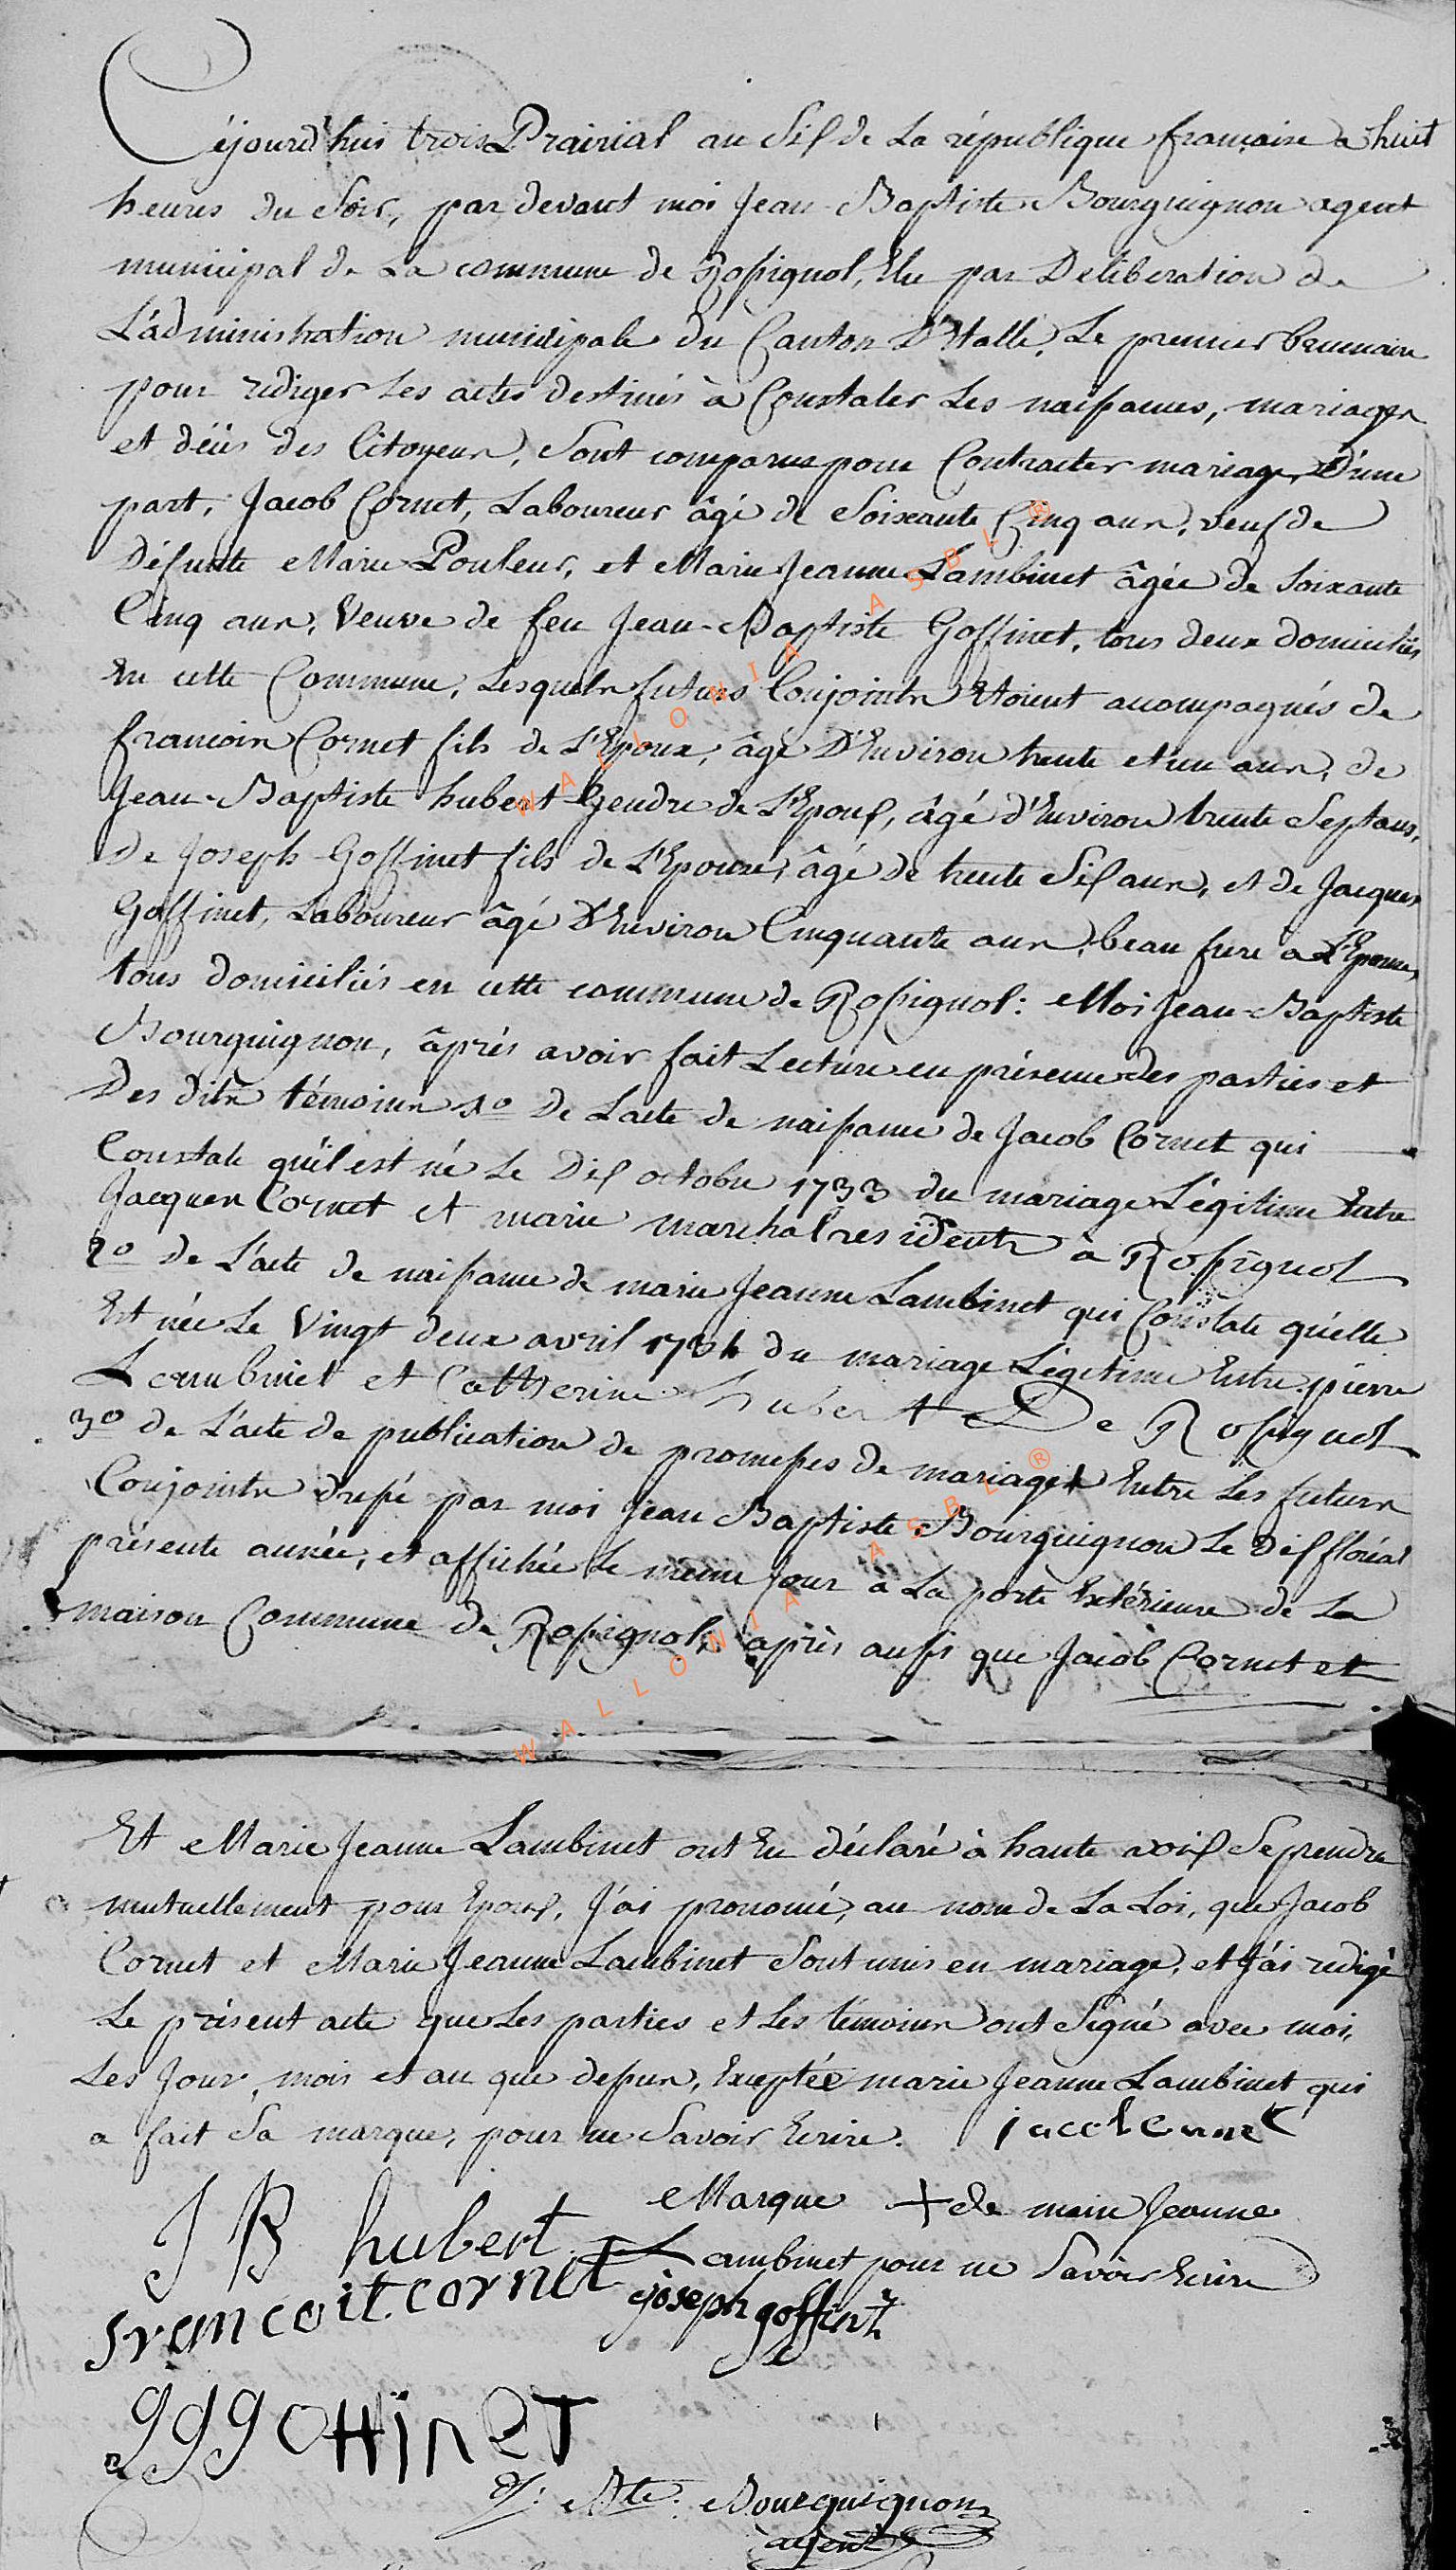 Cejourd'hui trois Prairial an Six de La république française à huit
heures du Soir, par devant moi Jean-Baptiste Bourguignon agent
municipal de La commune de Rossignol, Elu par Deliberation de
L'administration municipale du Canton D'Etalle, Le premier brumaire
pour rédiger Les actes destinés à Constater Les naissances, mariages
et décès des Citoyens, Sont comparus pour Contracter mariage, D'une
part, Jacob Cornet, Laboureur âgé de Soixante Cinq ans, veuf de
Défunte Marie Pouleur, et Marie Jeanne Lambinet âgée de Soixante
Cinq ans, Veuve de feu Jean-Baptiste Goffinet, tous deux domiciliés
En cette Commune, Lesquels futurs Conjoints Etoient acompagnés de
francois Cornet fils de L'Epoux, âgé D'Environ trente et un ans, de
Jean-Baptiste hubert Gendre de L'Epoux, âgé d'Environ trente Sept ans,
De Joseph Goffinet fils de L'Epouse, âgé de trente Six ans, et de Jacques
Goffinet, Laboureur âgé D'Environ Cinquante ans, beau frere a L'Epouse,
tous domiciliés en cette commune de Rossignol: Moi Jean-Baptiste
Bourguignon, âprés avoir fait Lecture en présence des parties et
Des dits témoins 1o de L'acte de naissance de Jacob Cornet qui
Constate qu'il est né Le Dix octobre 1733 du mariage Légitime Entre
Jacques Cornet et marie marchal residents à Rossignol
2o de L'acte de naissance de marie Jeanne Lambinet qui Constate qu'elle
Est née Le Vingt deux avril 1734 du mariage Légitime Entre pierre
Lambinet et Catherine hubert De Rossignol
3o de L'acte de publication de promesses de mariage Entre Les futurs
Conjoints dressé par moi Jean Baptiste Bourguignon Le Dix floréal
présente année, et affichée Le meme Jour à La porte Extérieure de La
maison Commune de Rossignol, après aussi que Jacob Cornet et
Et Marie Jeanne Lambinet ont Eu déclaré à haute voix Se prendre
mutuellement pour Epoux, J'ai prononcé, au nom de La Loi, que Jacob
Cornet et Marie Jeanne Lambinet Sont unis en mariage, et J'ai redigé
Le présent acte que Les parties et Les témoins ont Signé avec moi,
Les Jour, mois et an que dessus, Exceptée marie Jeanne Lambinet qui
a fait Sa marque, pour ne Savoir Ecrire.
Marque + de marie Jeanne
J B hubert
Lambinet pour ne Savoir Ecrire
francoit cornet
joseph goffint
J: Bte: Bourguignon
agent
WALLONIA ASBL ®
WALLONIA ASBL ®